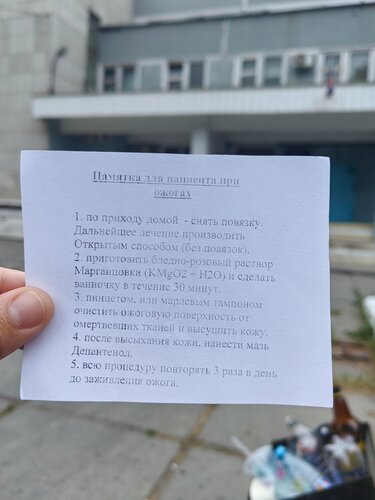 Памятка для пациента при
ожогах
1. по приходу домой - снять повязку.
Дальнейшее лечение производить
Открытым способом (без повязок).
2. приготовить бледно-розовый раствор
Марганцовки (KMgO2 + H2O) и сделать
ванночку в течение 30 минут.
3. пинцетом, или марлевым тампоном
очистить ожоговую поверхность от
омертвевших тканей и высушить кожу.
4. после высыхания кожи, нанести мазь
Депантенол.
5. всю процедуру повторять 3 раза в день
до заживления ожога.